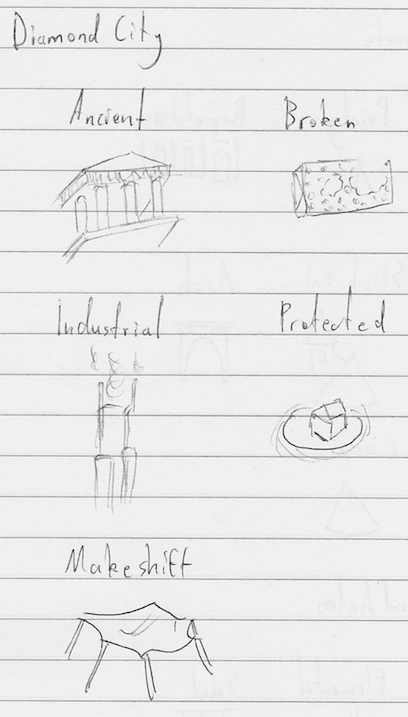 Diamond City
Ancient Broken
Industrial Protected
Makeshift